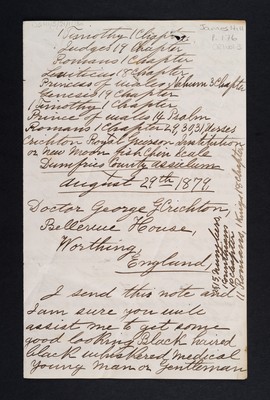 1 Timothy 1 Chapter
Judges 19 Chapter
Romans 1 Chapter
Leviticus 18 Chapter
Princess of wales, Nahum 3 Chapter
Genesis 19 Chapter
1 Timothy 1 Chapter
Prince of wales 14 Psalm
Romans 1 Chapter 29, 30, 31 Verses
Crichton Royal Institution
or New Moon
Dumfries County assielum
August 29th 1879
Doctor George G Crichton,
Bellevue House,
Worthing,
England,
I send this note and
I am sure you will
assist me to get some
good looking Black haired
black whiskered medical
Young man or Gentleman